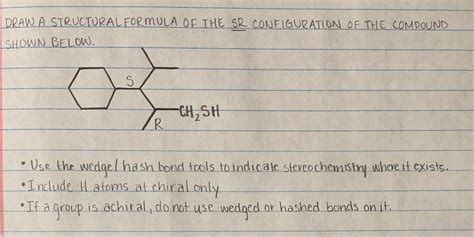 DRAW A STRUCTURAL FORMULA OF THE SR CONFIGURATION OF THE COMPOUND
SHOWN BELOW.
S
CH₂SH
R
• Use the wedge/hash bond tools to indicate stereochemistry where it exists.
• Include H atoms at chiral only
• If a group is achiral, do not use wedged or hashed bonds on it.